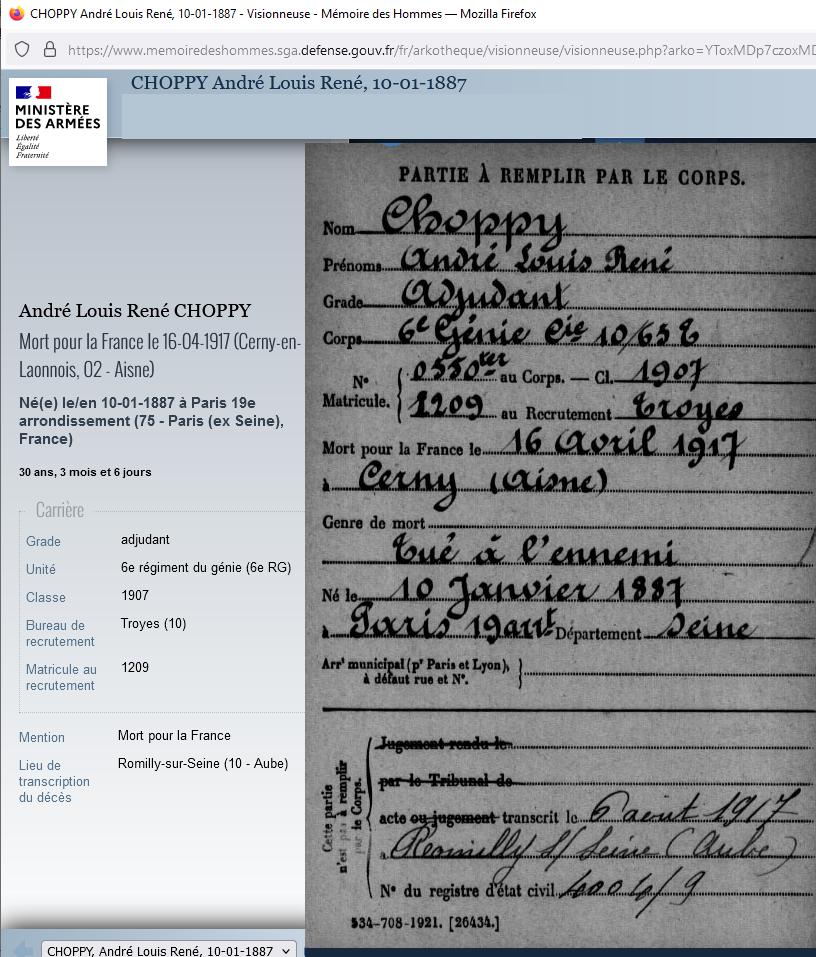 CHOPPY André Louis René, 10-01-1887 - Visionneuse - Mémoire des Hommes — Mozilla Firefox
https://www.memoiredeshommes.sga.defense.gouv.fr/fr/arkotheque/visionneuse/visionneuse.php?arko=YToxMDp7czoxMD
CHOPPY André Louis René, 10-01-1887
MINISTÈRE
DES ARMÉES
Liberté
Égalité
Fraternité
André Louis René CHOPPY
Mort pour la France le 16-04-1917 (Cerny-en-
Laonnois, 02 - Aisne)
Né(e) le/en 10-01-1887 à Paris 19e
arrondissement (75 - Paris (ex Seine),
France)
30 ans, 3 mois et 6 jours
Carrière
Grade adjudant
Unité 6e régiment du génie (6e RG)
Classe 1907
Bureau de
recrutement Troyes (10)
Matricule au
recrutement 1209
Mention Mort pour la France
Lieu de
transcription
du décès Romilly-sur-Seine (10 - Aube)
CHOPPY, André Louis René, 10-01-1887
PARTIE À REMPLIR PAR LE CORPS.
Nom Choppy
Prénoms André Louis René
Grade Adjudant
Corps 6e Génie Cie 10/63 T
No 0550ter au Corps. — Cl. 1907
Matricule. 1209 au Recrutement Troyes
Mort pour la France le 16 Avril 1917
à Cerny (Aisne)
Genre de mort
Tué à l'ennemi
Né le 10 Janvier 1887
à Paris 19arrt Département Seine
Arrt municipal (pr Paris et Lyon),
à défaut rue et No.
Cette partie
n'est pas à remplir
par le Corps.
Jugement rendu le
par le Tribunal de
acte ou jugement transcrit le 6 août 1917
à Romilly s/ Seine (Aube)
No du registre d'état civil
534-708-1921. [26434.]